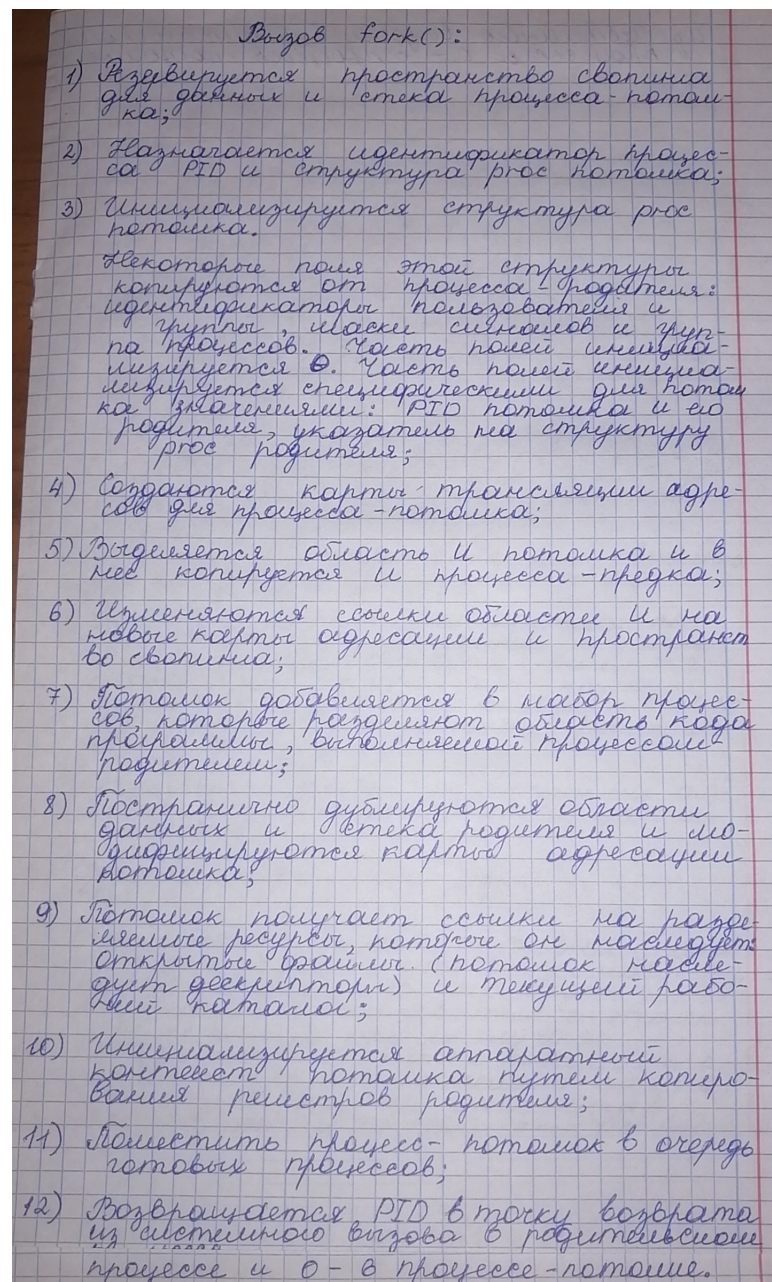 Вызов fork():
1) Резервируется пространство свопинга
для данных и стека процесса-потом-
ка;
2) Назначается идентификатор процес-
са PID и структура proc потомка;
3) Инициализируется структура proc
потомка.
Некоторые поля этой структуры
копируются от процесса-родителя:
идентификаторы пользователя и
группы, маски сигналов и груп-
па процессов. Часть полей инициа-
лизируется 0. Часть полей инициа-
лизируется специфическими для потом
ка значениями: PID потомка и его
родителя, указатель на структуру
proc родителя;
4) Создаются карты трансляции адре-
сов для процесса-потомка;
5) Выделяется область U потомка и в
нее копируется U процесса-предка;
6) Изменяются ссылки области U на
новые карты адресации и пространст
во свопинга;
7) Потомок добавляется в набор процес-
сов, которые разделяют область кода
программы, выполняемой процессом-
родителем;
8) Постранично дублируются области
данных и стека родителя и мо-
дифицируются карты адресации
потомка;
9) Потомок получает ссылки на разде-
ляемые ресурсы, которые он наследует:
открытые файлы (потомок насле-
дует дескрипторы) и текущий рабо-
чий каталог;
10) Инициализируется аппаратный
контекст потомка путем копиро-
вания регистров родителя;
11) Поместить процесс-потомок в очередь
готовых процессов;
12) Возвращается PID в точку возврата
из системного вызова в родительском
процессе и 0 - в процессе-потомке.